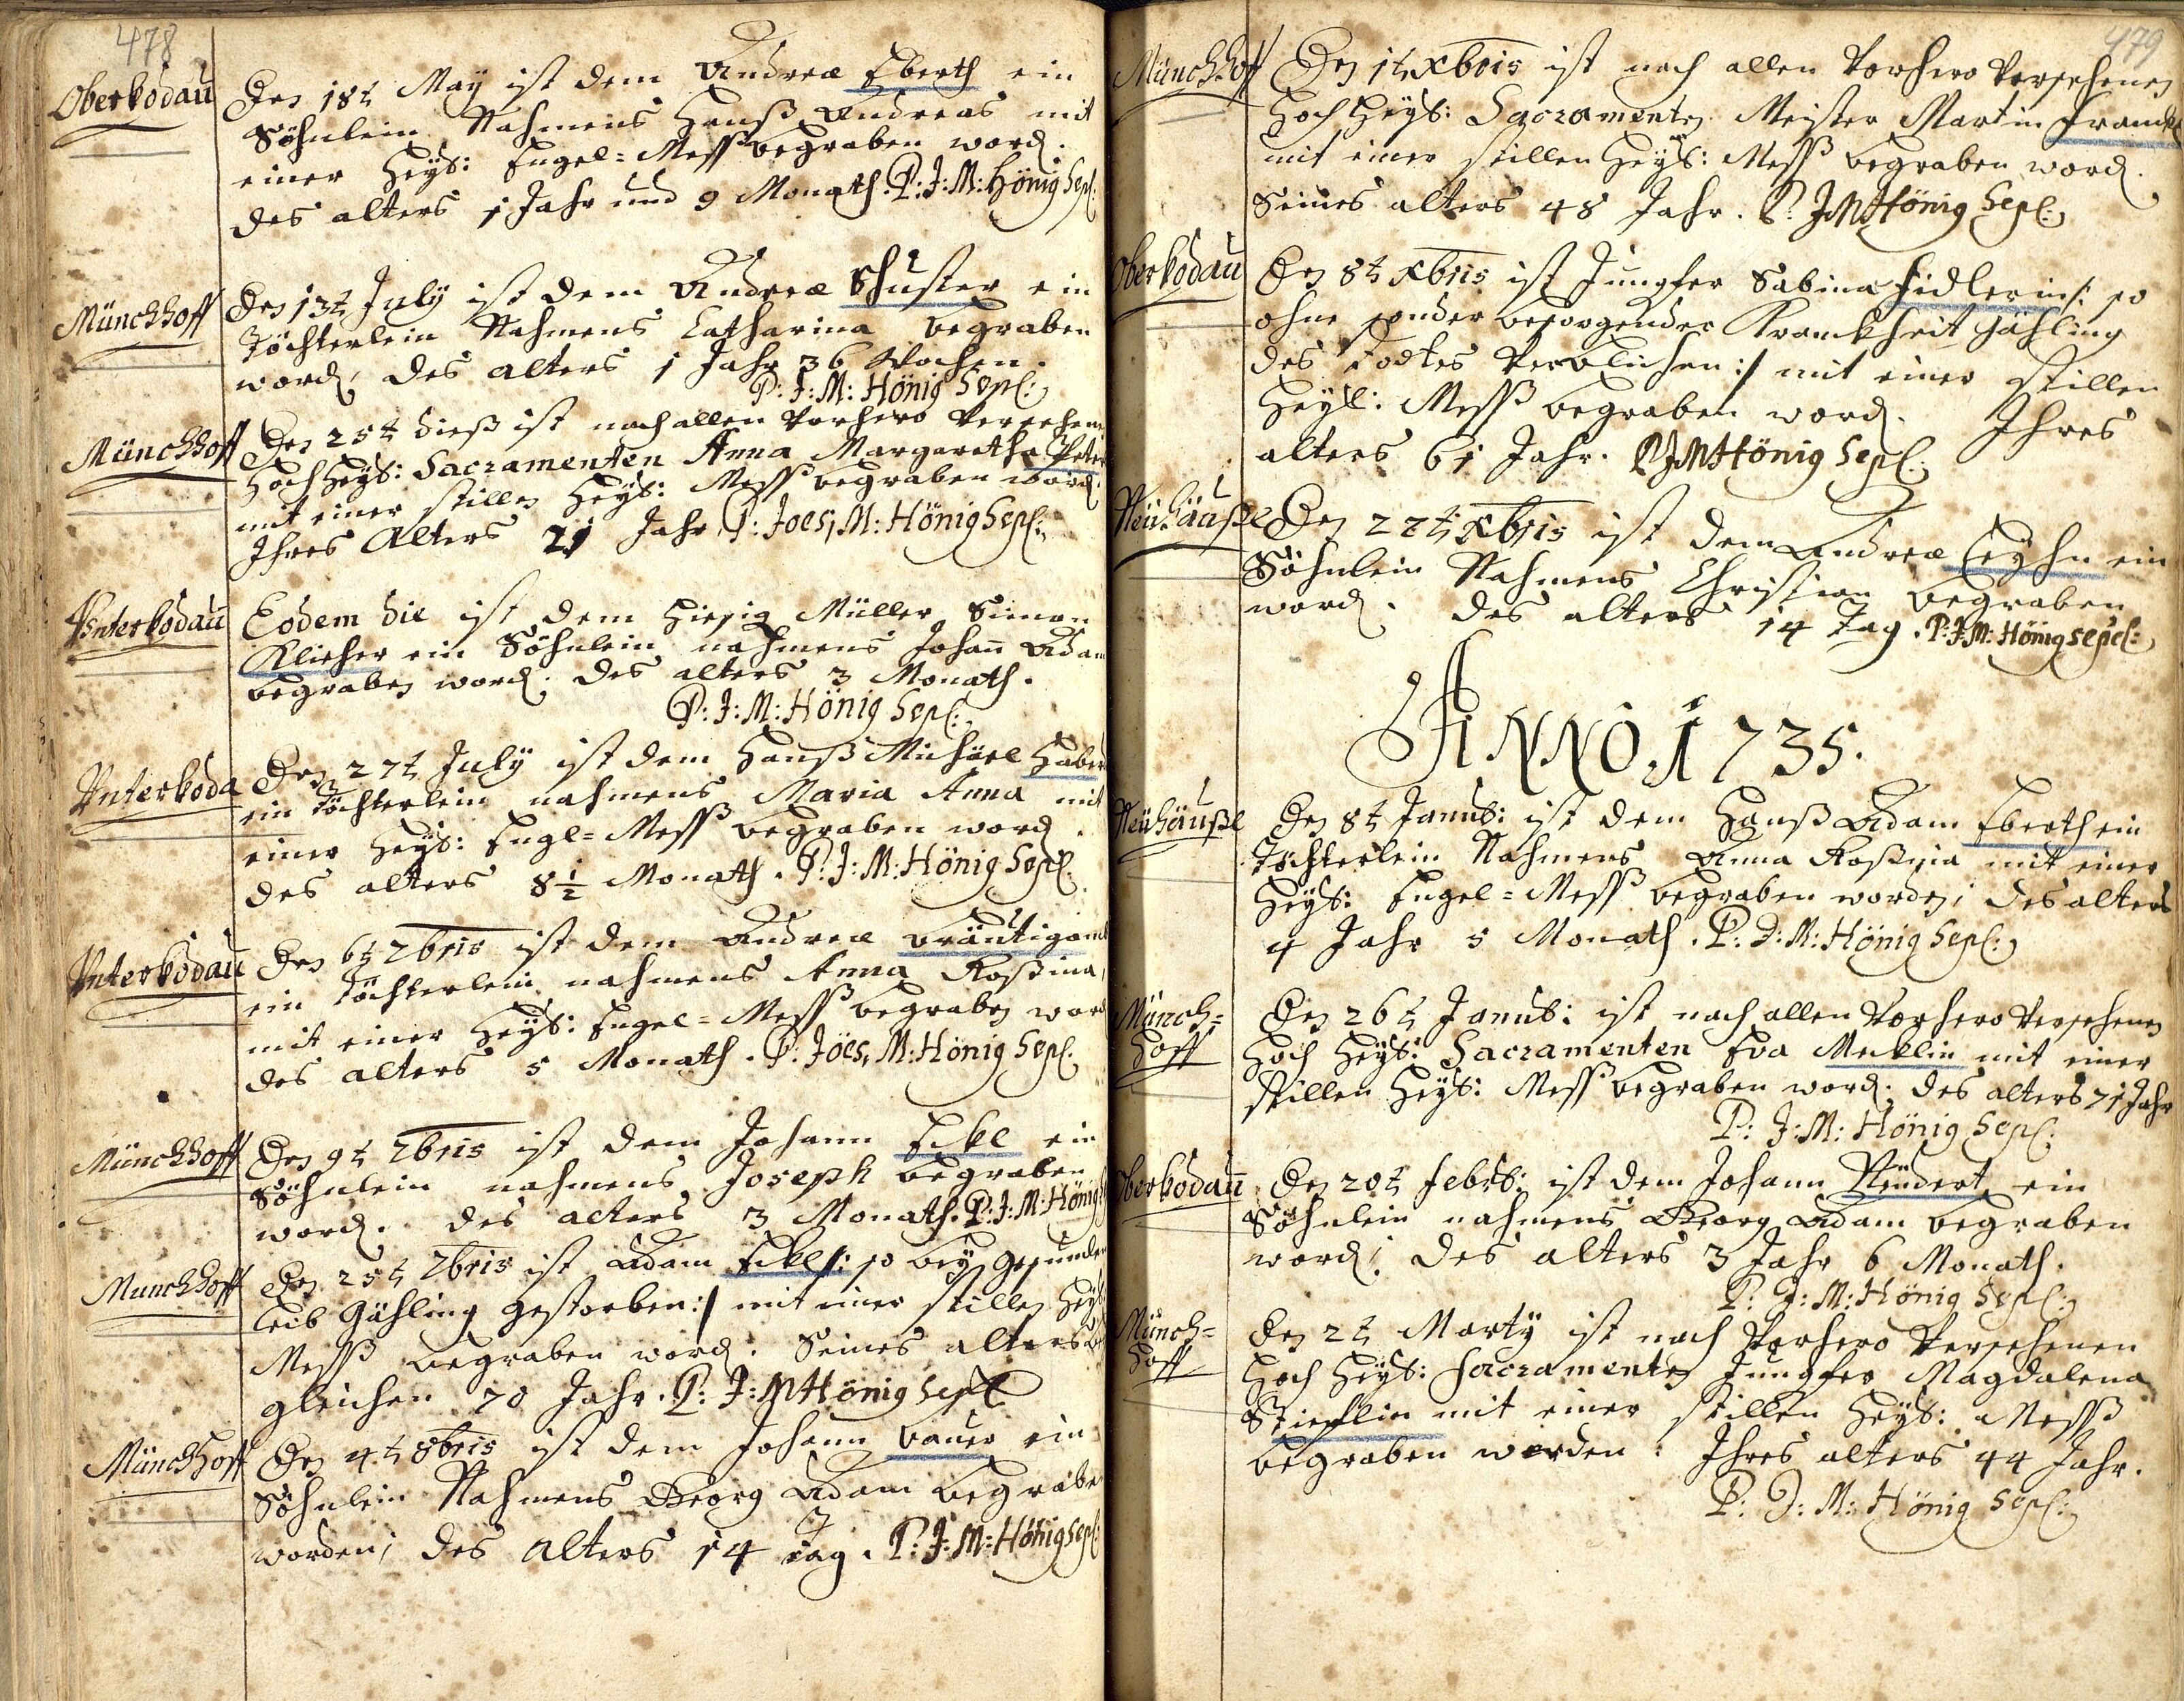 478
Oberkodau
Den 18t May ist dem Andreæ Eberth ein
Söhnlein Nahmens Hanß Andreas mit
einer Heyl: Engel-Messß begraben word.
des alters 1 Jahr und 9 Monath. P: J: M: Hönig Sepl:
Münchhoff
Den 13t July ist dem Andreæ Schuster ein
Töchterlein Nahmens Catharina begraben
word, des alters 1 Jahr 36 Wochen.
P: J: M: Hönig Sepl:
Münchhoff
Den 25t dieß ist nach allen Vorhero Versehene
Hoch Heyl: Sacramenten Anna Margaretha Peter
mit einer stillen Heyl: Messß begraben word.
Ihres Alters 21 Jahr P: Joes, M: Hönig Sepl:
Vnterkodau
Eodem die ist dem hiesig Müller Simon
Klieher ein Söhnlein nahmens Johan Adam
begraben word: des alters 3 Monath.
P: J: M: Hönig Sepl:
Vnterkoda
Den 27t July ist dem Hanß Michäel Haber
ein Töchterlein nahmens Maria Anna mit
einer Heyl: Engl-Messß begraben word.
des alters 8 1/2 Monath. P: J: M: Hönig Sepl:
Vnterkodau
Den 6t 7bris ist dem Andreæ Bräutigam
ein Töchterlein nahmens Anna Roßina,
mit einer Heyl: Engel-Messß begraben word
des alters 5 Monath. P: Jöes, M: Hönig Sepl:
Münchhoff
Den 9t 7bris ist dem Johann Eckl ein
Söhnlein nahmens Joseph begraben
word. des alters 3 Monath. P: J: M: Hönig
Munchhoff
Den 25t 7bris ist Adam Eckl /: so bey gesunden
Leib Gählling gestorben :/ mit einer stillen Heyl
Messß begraben word: Seines alters
gleichen 70 Jahr. P: J: M Hönig Sepl
Münchhoff
Den 4t 8bris ist dem Johann Bauer ein
Söhnlein Nahmens Georg Adam begrabe
worden, des Alters 14 tag. P: J: M: Hönig Sepl:
479
Münchhoff
Den 1t Xbris ist nach allen Vorhero Versehenen
Hoch Heyl: Sacramenten Meister Martin Franck
mit einer stillen Heyl: Messß begraben word.
Seines alters 48 Jahr. P: J M Hönig Sepl:
Oberkodau
Den 8t Xbris ist Jungfer Sabina Fidlerin /: so
ohne sonder besorgender Kranckheit Gähling
des Todtes Verblichen :/ mit einer stillen
Heyl: Messß begraben word. Ihres
alters 61 Jahr. P J M Hönig Sepl:
Neühäußl
Den 22t Xbris ist dem Andreæ ein
Söhnlein Nahmens Christian begraben
word. des alters 14 Tag. P: J: M: Hönig Sepel:
ANNO 1735.
Neühäußl
Den 8t Januar: ist dem Hanß Adam Eberth ein
Töchterlein Nahmens Anna Roßina mit einer
Heyl: Engel-Messß begraben worden; des alters
4 Jahr 5 Monath. P: J: M: Hönig Sepl:
Münch-
hoff
Den 26t Januar: ist nach allen Vorhero Versehenen
Hoch Heyl: Sacramenten Eva Mecklin mit einer
stillen Heyl: Messß begraben word. des alters 71 Jahr
P: J: M: Hönig Sepl:
Oberkodau
Den 20t Febr: ist dem Johann ein
Söhnlein nahmens Georg Adam begraben
word: des alters 3 Jahr 6 Monath.
P: J: M: Hönig Sepl:
Münch-
hoff
Den 2t Marty ist nach Vorhero Versehenen
Hoch Heyl: Sacramenten Jungfer Magdalena
Stieflin mit einer stillen Heyl: Messß
begraben werden: Ihres alters 44 Jahr.
P: J: M: Hönig Sepl: